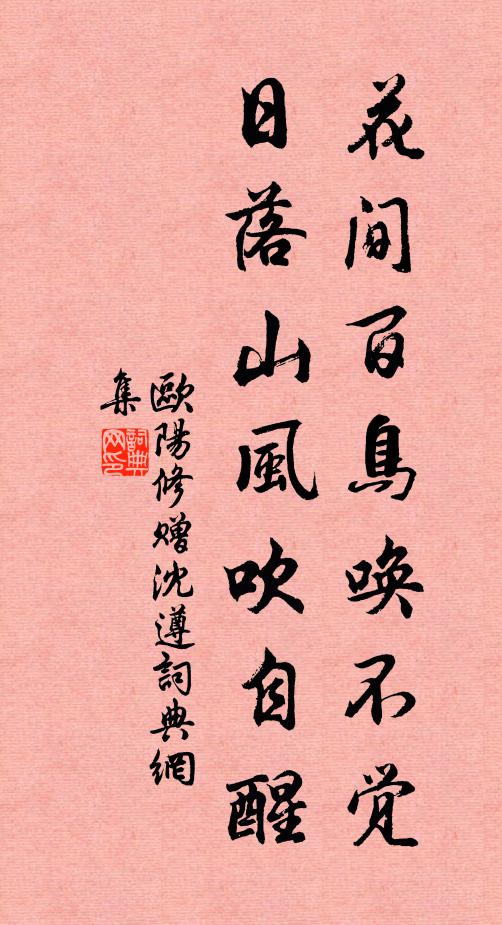 花间百鳥唤不觉
日落山風吹自醒
歐陽修赠沈遵詞典網
集
詞典网印